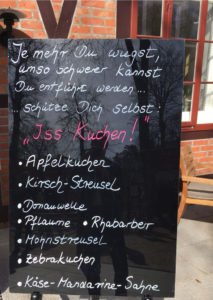 Je mehr Du wiegst,
umso schwerer kannst
Du entführt werden...
...schütze Dich selbst:
„Iss Kuchen!"
• Apfelkuchen
• Kirsch-Streusel
• Donauwelle
• Pflaume • Rhabarber
• Mohnstreusel
• Zebrakuchen
• Käse-Mandarine-Sahne